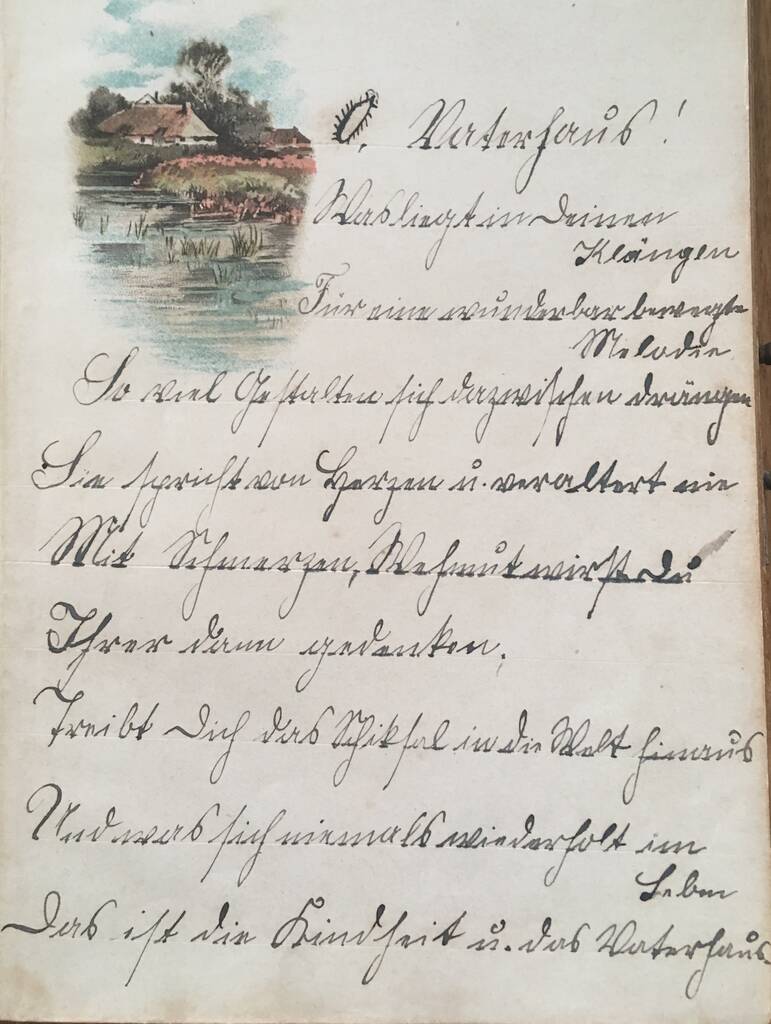 O, Vaterhaus!
Was liegt in Deinen
Klängen
Für eine wunderbar bewegte
Melodie
So viel Gestalten sich dazwischen drängen
Sie spricht von Herzen u. veraltert nie
Mit Schmerzen, Wehmut wirst Du
Ihrer dann gedenken,
Treibt Dich das Schiksal in die Welt hinaus
Und was sich niemals wiederholt im
Leben
Das ist die Kindheit u. das Vaterhaus.